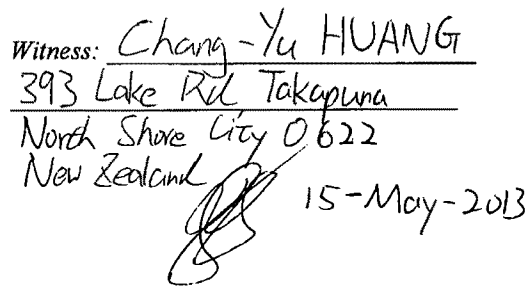 Witness: Chang-Yu HUANG
393 Lake Rd Takapuna
North Shore City 0622
New Zealand
15-May-2013